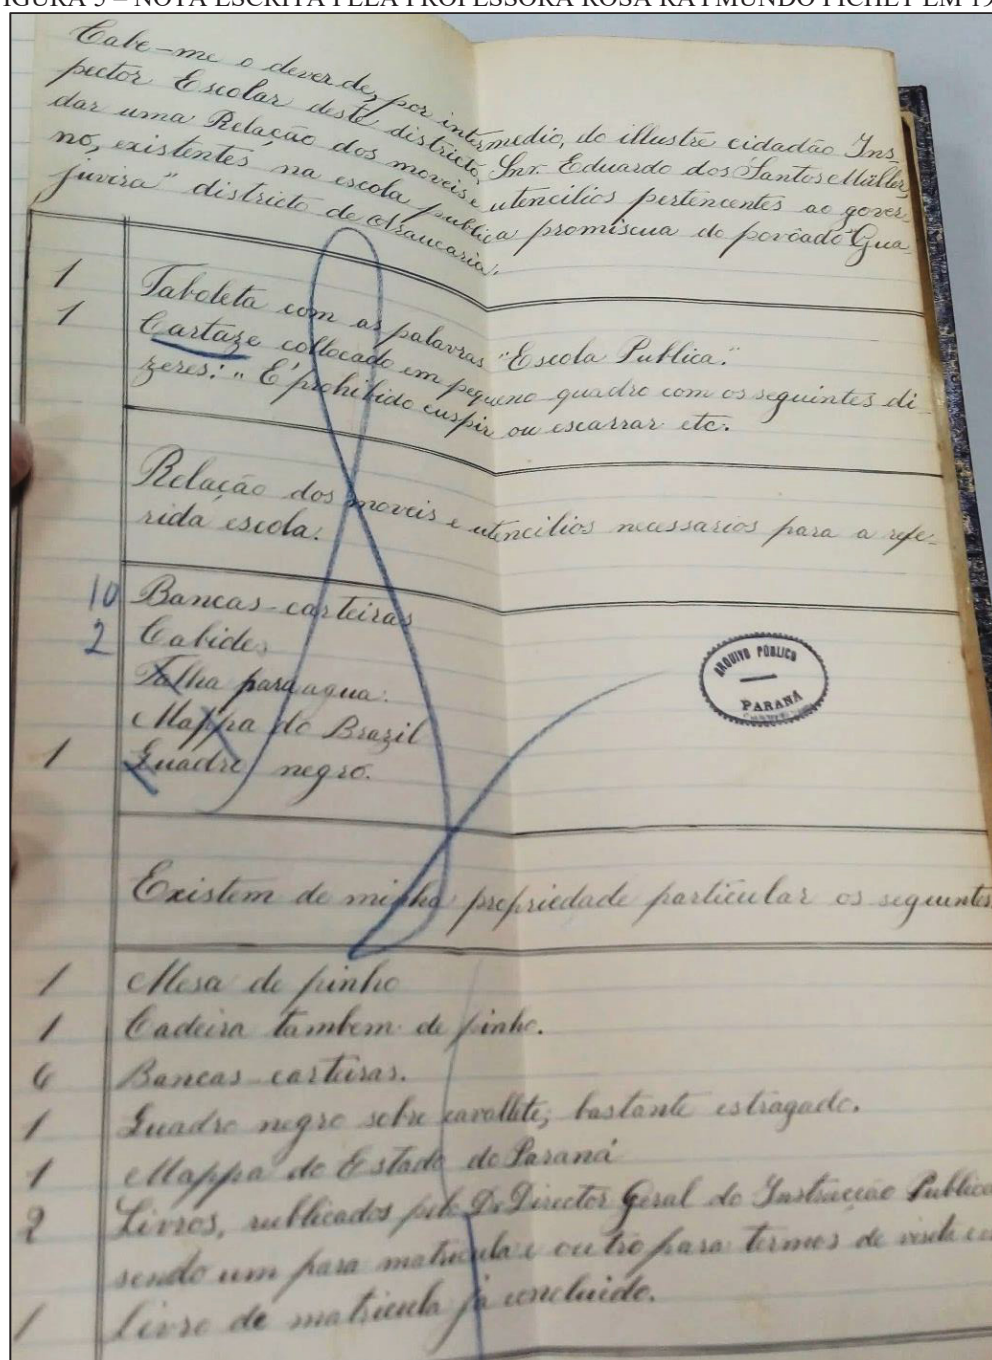 FIGURA 5 – NOTA ESCRITA PELA PROFESSORA ROSA RAYMUNDO PICHET EM 19
Cabe-me o dever de, por intermedio, do illustre cidadão Ins
pector Escolar deste districto, Snr. Eduardo dos Santos Müller,
dar uma Relação dos moveis e utencilios pertencentes ao gover
no, existentes na escola publica promiscua do povoado "Gua
juvira" districto de Araucaria.
1 Taboleta com as palavras "Escola Publica."
1 Cartaze collocado em pequeno quadro com os seguintes di
zeres: "É prohibido cuspir ou escarrar etc.
Relação dos moveis e utencilios necessarios para a refe-
rida escola.
10 Bancas-carteiras
2 Cabides
Talha para agua.
Mappa do Brazil
1 Quadro negro.
Existem de minha propriedade particular os seguintes
1 Mesa de pinho
1 Cadeira tambem de pinho.
6 Bancas-carteiras.
1 Quadro negro sobre cavallete, bastante estragado.
1 Mappa do Estado do Paraná
2 Livros, rublicados pelo Dr. Director Geral da Instrucção Publica
sendo um para matricula e outro para termos de visita
1 Livro de matricula já concluido.
ARQUIVO PÚBLICO
PARANÁ